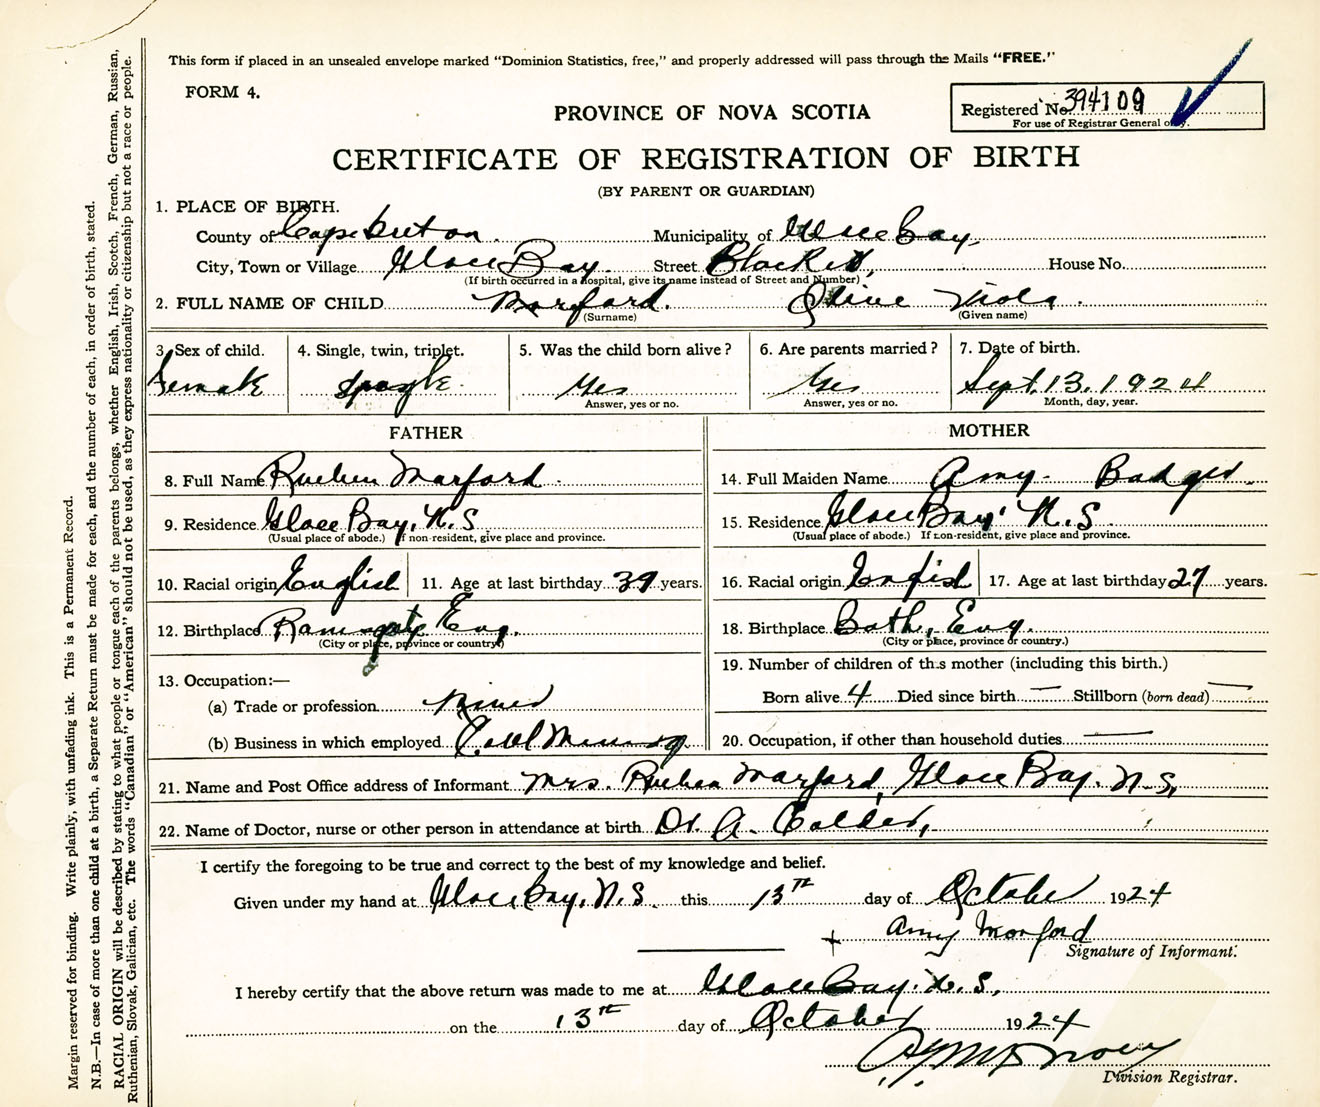 This form if placed in an unsealed envelope marked "Dominion Statistics, free," and properly addressed will pass through the Mails "FREE."
FORM 4.
PROVINCE OF NOVA SCOTIA
Registered No. 394109
For use of Registrar General only.
CERTIFICATE OF REGISTRATION OF BIRTH
(BY PARENT OR GUARDIAN)
1. PLACE OF BIRTH.
County of Cape breton Municipality of Glace bay,
City, Town or Village Glace Bay. Street Blackett, House No.
(If birth occurred in a hospital, give its name instead of Street and Number)
2. FULL NAME OF CHILD Morford. Olive Viola.
(Surname) (Given name)
3. Sex of child. 4. Single, twin, triplet. 5. Was the child born alive? 6. Are parents married? 7. Date of birth.
Female Single Yes Yes Sept. 13. 1924
Answer, yes or no. Answer, yes or no. Month, day, year.
FATHER MOTHER
8. Full Name Rueben Marford. 14. Full Maiden Name Amy. Badger.
9. Residence Glace Bay, N.S 15. Residence Glace Bay N.S.
(Usual place of abode.) If non-resident, give place and province. (Usual place of abode.) If non-resident, give place and province.
10. Racial origin English 11. Age at last birthday 39 years. 16. Racial origin English 17. Age at last birthday 27 years.
12. Birthplace Ramsgate Eng. 18. Birthplace Bath, Eng.
(City or place, province or country.) (City or place, province or country.)
19. Number of children of this mother (including this birth.)
13. Occupation:—
Born alive 4 Died since birth — Stillborn (born dead) —
(a) Trade or profession Miner
(b) Business in which employed Coal Mining 20. Occupation, if other than household duties —
21. Name and Post Office address of Informant Mrs. Rueben Marford, Glace Bay. N.S,
22. Name of Doctor, nurse or other person in attendance at birth Dr. A. Calder,
I certify the foregoing to be true and correct to the best of my knowledge and belief.
Given under my hand at Glace bay, N.S. this 13TH day of October 1924
+ Amy Morford
Signature of Informant.
I hereby certify that the above return was made to me at Glace Bay. N.S,
on the 13TH day of October 1924
Division Registrar.
Margin reserved for binding. Write plainly, with unfading ink. This is a Permanent Record.
N.B.—In case of more than one child at a birth, a Separate Return must be made for each, and the number of each, in order of birth, stated.
RACIAL ORIGIN will be described by stating to what people or tongue each of the parents belongs, whether English, Irish, Scotch, French, German, Russian,
Ruthenian, Slovak, Galician, etc. The words "Canadian" or "American" should not be used, as they express nationality or citizenship but not a race or people.